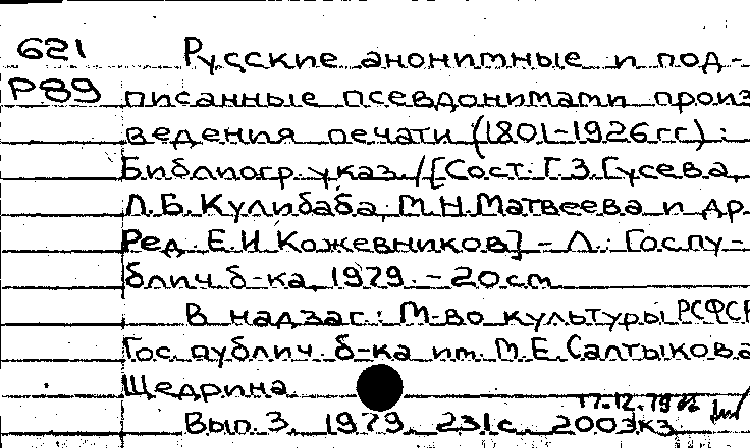 621 Русские анонимные и под-
Р89 писанные псевдонимами произ
ведения печати (1801-1926гг) :
Библиогр. указ. /[Сост. Г.З.Гусева,
Л.Б.Кулибаба, М.Н.Матвеева и др.
Ред. Е.И.Кожевников] - Л.: Госпу-
блич. б-ка, 1979. - 20см
В надзаг.: М-во культуры РСФСР
Гос. публич. б-ка им. М.Е.Салтыкова
Щедрина.
17.12.79
Вып. 3. 1979. 231с. 200экз.